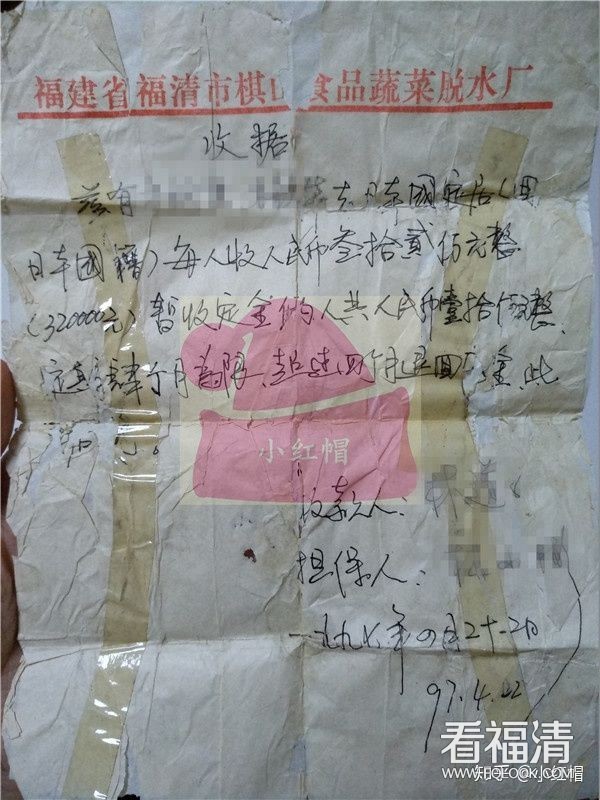 福建省福清市棋山食品蔬菜脱水厂
收据
兹有 去日本國定居(田
日本國籍)每人收人民币叁拾貳仟元整
(320000元)暂收定金俩人共人民币壹拾仟元整、
定 肆个月为限、超过四个月退回 金、此
小红帽
收款人:林
担保人:
一九九七年四月二十二日
97.4.22
看福清
知乎 @小红帽